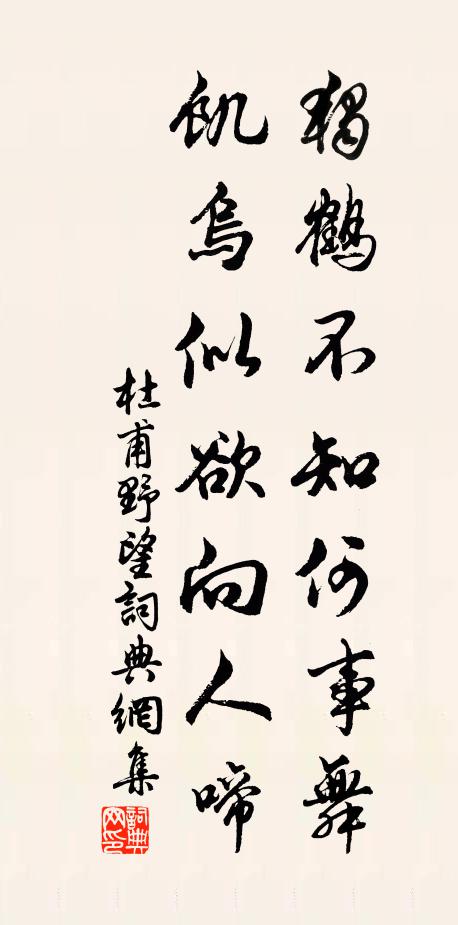 獨鶴不知何事舞
飢烏似欲向人啼
杜甫野望詞典網集
詞典網印